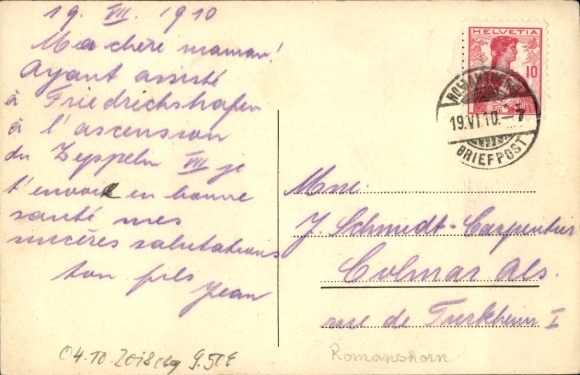 19. VII. 1910
Ma chère maman!
Ayant assisté
à Friedrichshafen
à l'ascension
du Zeppelin VII je
t'envoie en bonne
santé mes
sincères salutations
ton fils
Jean
HELVETIA
10
19.VI.10. — 7
BRIEFPOST
Mme.
J. Schmidt-Carpentier
Colmar Als.
rue de Turkheim I
Romanshorn
04.10.2018 9.50€